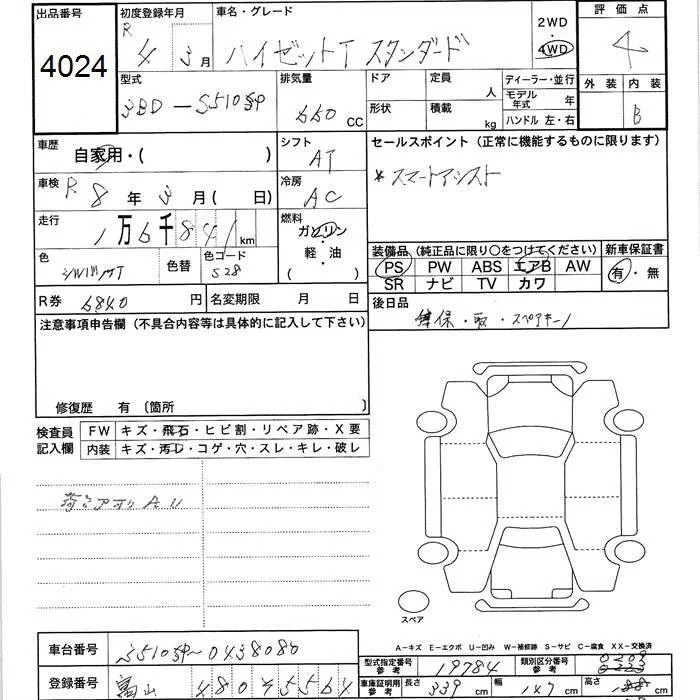 出品番号 初度登録年月 車名・グレード 2WD ・ 4WD 評価点
4024 R 4年 3月 ハイゼットT スタンダード 4
型式 排気量 ドア 定員 人 ディーラー・並行 外装 内装
3BD-S510P 660 CC 形状 積載 kg モデル年式 年 ハンドル 左・右 B
車歴 自家用・( ) シフト AT セールスポイント (正常に機能するものに限ります)
車検 R 8年 3月( 日) 冷房 AC *スマートアシスト
走行 1万6千841km 燃料 ガソリン・軽・油 ( )
装備品 (純正品に限り○をつけてください) 新車保証書
色 シルバーM 色替 色コード S28 PS PW ABS エアB AW 有・無
SR ナビ TV カワ
R券 6840円 名変期限 月 日 後日品
注意事項申告欄 (不具合内容等は具体的に記入して下さい) 保・取・スペアキー
修復歴 有 〔箇所 〕
検査員記入欄 FW キズ・飛石・ヒビ割・リペア跡・X要
内装 キズ・汚レ・コゲ・穴・スレ・キレ・破レ
荷台アオリ A U
スペア
A-キズ E-エクボ U-凹み W-補修跡 S-サビ C-腐食 XX-交換済
車台番号 S510P-0438080 型式指定番号 参考 19784 類別区分番号 参考 0209
登録番号 富山 480 車庫証明用 参考 長さ 339 cm 幅 147 cm 高さ cm